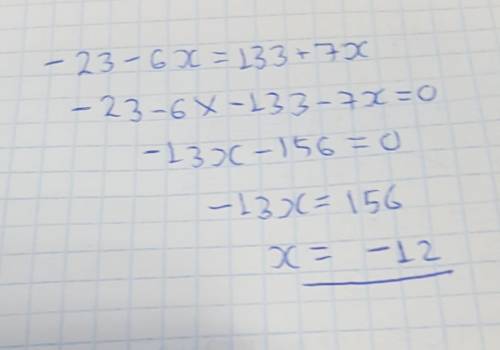 -23-6x=133+7x
-23-6x-133-7x=0
-13x-156=0
-13x=156
x= -12